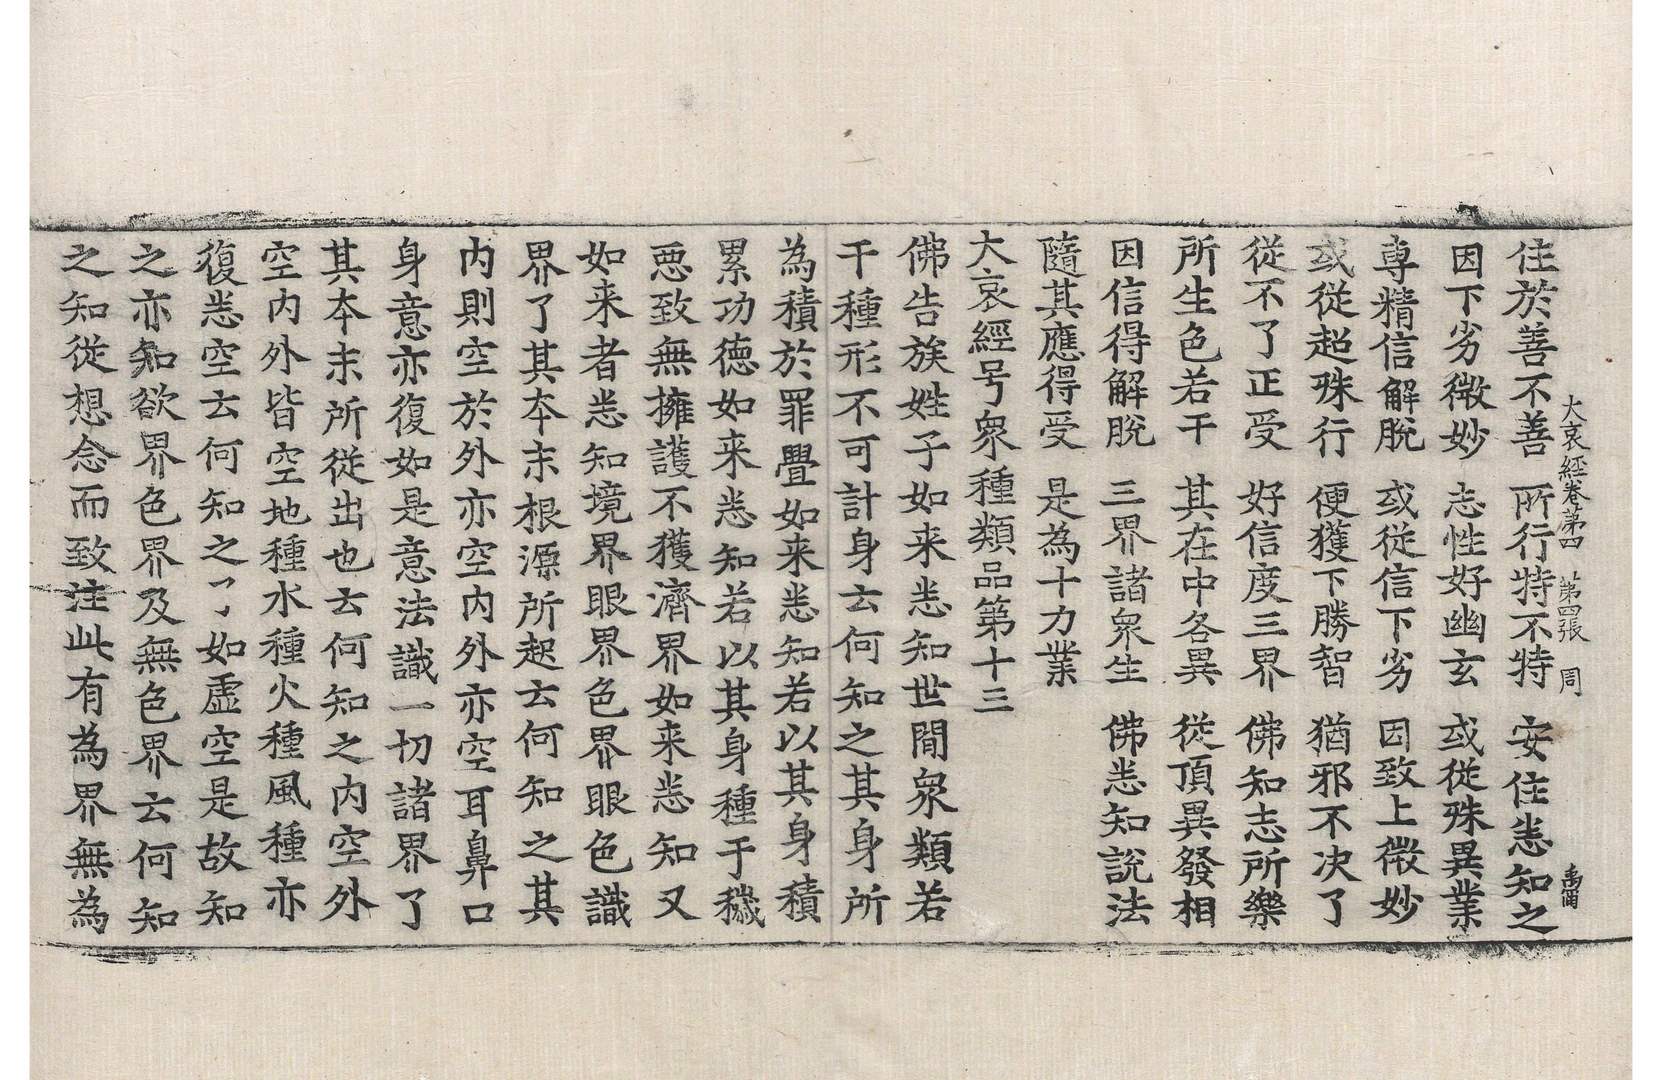 大哀經卷苐四　第四張　周
住於善不善　所行特不特　安住悉知之
因下劣微妙　志性好幽玄　或從殊異業
專精信解脫　或從信下劣　因致上微妙
或從超殊行　便獲下勝智　猶邪不决了
從不了正受　好信度三界　佛知志所樂
所生色若干　其在中各異　從頂異發相
因信得解脫　三界諸衆生　佛悉知說法
隨其應得受　是為十力業
大哀經号衆種類品第十三
佛告族姓子如来悉知世間衆類若
干種形不可計身云何知之其身所
為積於罪舋如来悉知若以其身積
累功德如来悉知若以其身種于穢
惡致無擁護不獲濟界如来悉知又
如来者悉知境界眼界色界眼色識
界了其夲末根源所起云何知之其
内則空於外亦空内外亦空耳鼻口
身意亦復如是意法識一切諸界了
其夲末所從出也云何知之内空外
空内外皆空地種水種火種風種亦
復悉空云何知之了如虛空是故知
之亦知欲界色界及無色界云何知
之知從想念而致注此有為界無為